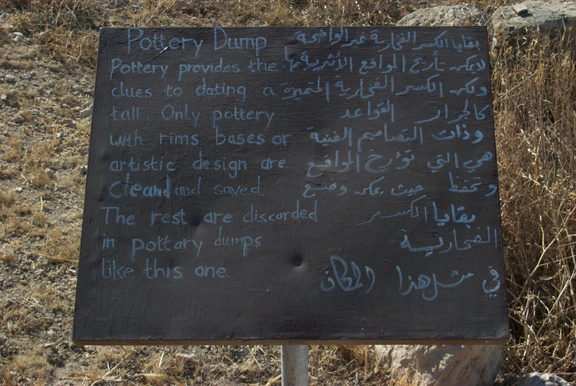 Pottery Dump
Pottery provides the
clues to dating a
tall. Only pottery
with rims bases or
artistic design are
cleand and saved.
The rest are discarded
in pottary dumps
like this one.
بقايا الكسر الفخارية غير الواضحة
لايمكن تاريخ المواقع الأثرية بها
ولكن الكسر الفخارية المميزة
كالجرار القواعد
وذات التصاميم الفنية
هي التي تؤرخ المواقع
وتحفظ حيث يمكن وضع
بقايا الكسر
الفخارية
في مثل هذا المكان